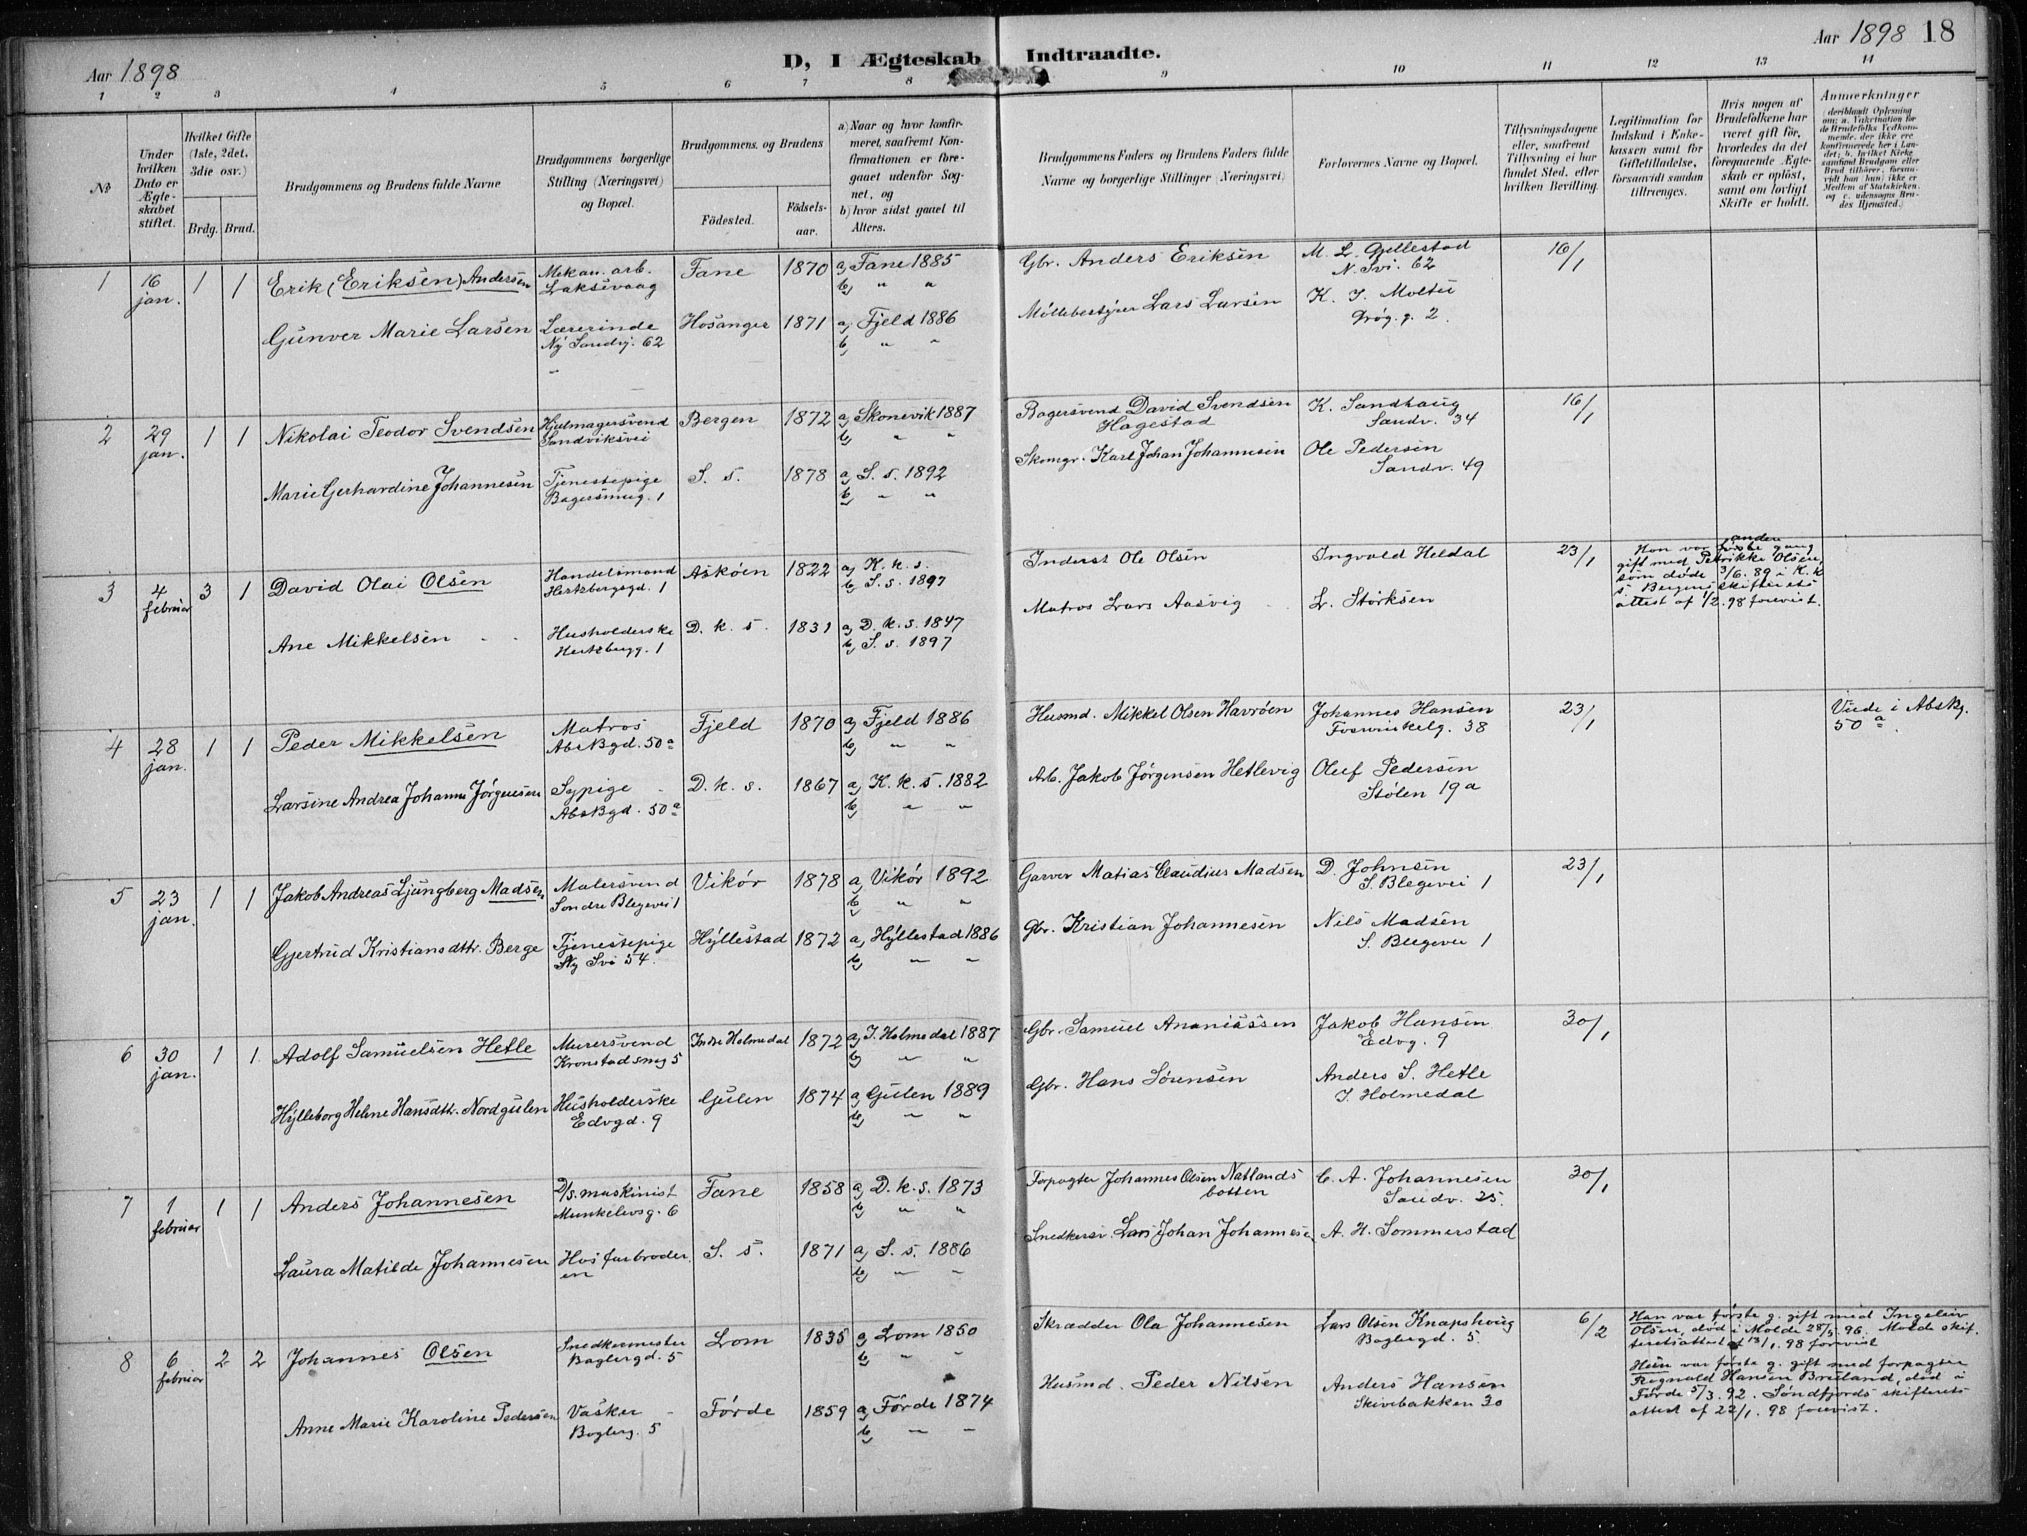 Aar 1898
D, I Ægteskab Indtraadte.
Aar 1898 18
1 2 3 4 5 6 7 8 9 10 11 12 13 14
No
Under hvilken Dato er Ægteskabet stiftet.
Hvilket Gifte (1ste, 2det, 3die osv.)
Brdg. Brud.
Brudgommens og Brudens fulde Navne
Brudgommens borgerlige Stilling (Næringsvei) og Bopæl.
Brudgommens og Brudens
Födested.
Födsels-aar.
a) Naar og hvor konfirmeret, saafremt Konfirmationen er foregaaet udenfor Sognet, og
b) hvor sidst gaaet til Alters.
Brudgommens Faders og Brudens Faders fulde Navne og borgerlige Stillinger (Næringsvei)
Forlovernes Navne og Bopæl.
Tillysningsdagene eller, saafremt Tillysning ei har fundet Sted, efter hvilken Bevilling.
Legitimation for Indskud i Enkekassen samt for Giftetilladelse, forsaavidt saadan tiltrænges.
Hvis nogen af Brudefolkene har været gift för, hvorledes da det foregaaende Ægteskab er oplöst, samt om lovligt Skifte er holdt.
Anmærkninger (deriblandt Oplysning om: a. Vakcination for de Brudefolks Vedkommende, der ikke ere konfirmerede her i Landet; b. hvilket Kirkesamfund Brudgom eller Brud tilhörer, forsaavidt han (hun) ikke er Medlem af Statskirken, og c. udensogns Brudes Hjemsted.)
1 16 jan. 1 1 Erik (Eriksen) Andersen Mekan. arb. Laksevaag Fane 1870 a) Fane 1885 b) " " Gbr. Anders Eriksen M. L. Gjellestad N. Svi. 62 16/1
Gunver Marie Larsen Lærerinde Ny Sandvj. 62 Hosanger 1871 a) Fjeld 1886 b) " " Møllebestyrer Lars Larsen K. J. Moltu 2.
2 29 jan. 1 1 Nikolai Teodor Svendsen Hjulmagersvend Sandviksvei Bergen 1872 a) Skonevik 1887 b) " " Bagersvend David Svendsen Hagestad K. Sandhaug Sandv. 34 16/1
Marie Gerhardine Johannesen Tjenestepige Bagersmug. 1 S. s. 1878 a) S. s. 1892 b) " " Skomgr. Karl Johan Johannesen Ole Pedersen Sandv. 49
3 4 februar 3 1 David Olai Olsen Handelsmand Hertzbergsgd. 1 Askøen 1822 a) K. k. s. b) S. s. 1897 Inderst Ole Olsen Ingvald Heldal 23/1
Han var første anden gang
gift med Petrikke Olsen,
som døde 3/6. 89 i K. k
s. Bergens skifterets
attest af 1/2. 98 forevist.
Ane Mikkelsen Husholderske Hertzbergg. 1 D. k. s. 1831 a) D. k. s. 1847 b) S. s. 1897 Matros Lars Aasvig L. Størksen
4 28 jan. 1 1 Peder Mikkelsen Matros AbsBgd. 50a Fjeld 1870 a) Fjeld 1886 b) " " Husmd. Mikkel Olsen Havrøen Johannes Hansen Fosswinkelg. 38 23/1 Viede i Absbg. 50a.
Larsine Andrea Johanne Jørgensen Sypige AbsBgd. 50a D. k. s. 1867 a) K. k. s. 1882 b) " " Arb. Jakob Jørgensen Hetlevig Oluf Pedersen Stølen 19a
5 23 jan. 1 1 Jakob Andreas Ljungberg Madsen Malersvend Søndre Blegevei 1 Vikør 1878 a) Vikør 1892 b) " " Garver Matias Claudius Madsen D. Johnsen S. Blegevei 1 23/1
Gjertrud Kristiansdtr. Berge Tjenestepige Ny Svi 54. Hyllestad 1872 a) Hyllestad 1886 b) " " Gbr. Kristian Johannesen Nils Madsen S. Blegevei 1
6 30 jan. 1 1 Adolf Samuelsen Hetle Murersvend Kronstadsmug 5 Indre Holmedal 1872 a) I. Holmedal 1887 b) " " Gbr. Samuel Ananiassen Jakob Hansen Edvg. 9 30/1
Hylleborg Helene Hansdtr. Nordgulen Husholderske Edvgd. 9 Gulen 1874 a) Gulen 1889 b) " " Gbr. Hans Sørensen Anders S. Hetle I. Holmedal
7 1 februar 1 1 Anders Johannesen D/S. maskinist Munkelivsg. 6 Fane 1858 a) D. k. s. 1873 b) " " Forpagter Johannes Olsen Natlandsbotten C. A. Johannesen Sandv. 25. 30/1
Laura Matilde Johannesen Hos farbroderen S. s. 1871 a) S. s. 1886 b) " " Snedkersv. Lars Johan Johannesen A. H. Sommerstad
8 6 februar 2 2 Johannes Olsen Snedkermester Baglergd. 5 Lom 1835 a) Lom 1850 b) " " Skrædder Ola Johannesen Lars Olsen Knapskoug Baglergd. 5. 6/2
Han var første g. gift med Ingeleiv
Olsen, død i Molde 28/5. 96. Molde skif-
teretsattest af 13/1. 98 forevist
Anne Marie Karoline Pedersen Vasker Baglerg. 5 Førde 1859 a) Førde 1874 b) " " Husmd. Peder Nilsen Anders Hansen Skivebakken 30
Hun var første g. gift med forpagter
Rognald Hansen Breiland, død i
Førde 5/3. 92. Søndfjords skifterets-
attest af 22/1. 98 forevist.